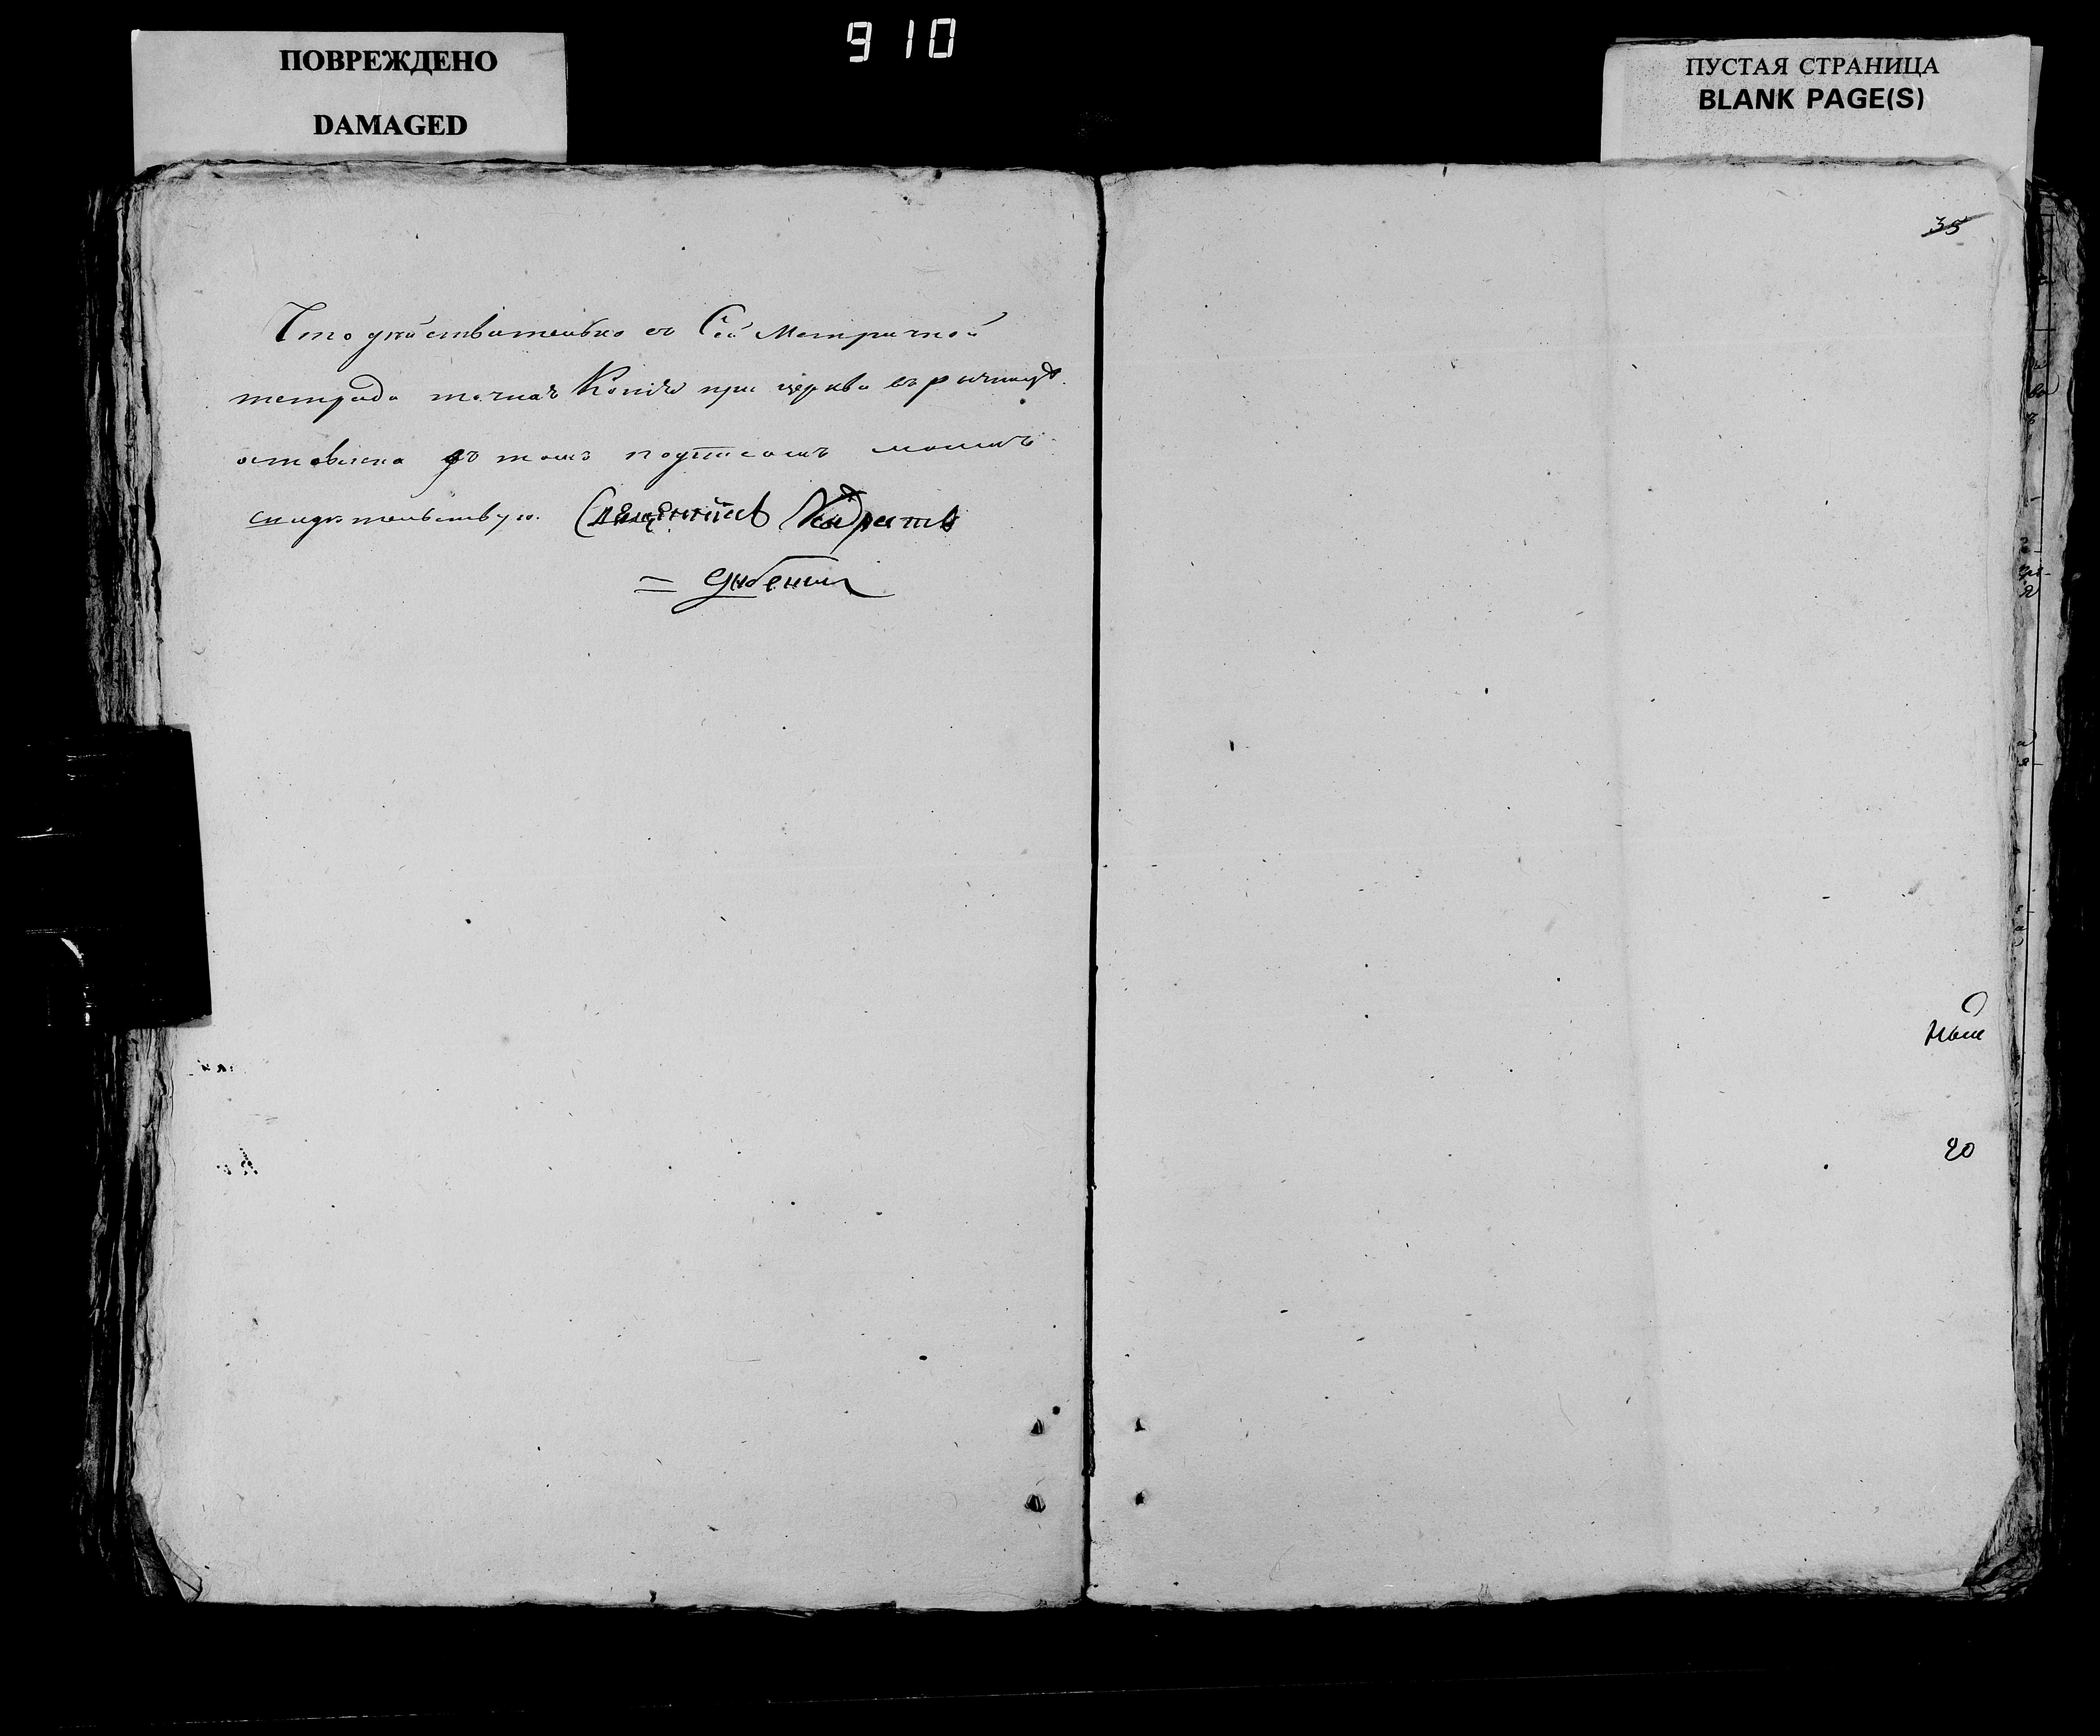 ПОВРЕЖДЕНО
DAMAGED
910
ПУСТАЯ СТРАНИЦА
BLANK PAGE(S)
35
Что действительно съ Сей Метричной
тетради точная Копия при церкви въ
оставлена въ томъ подписомъ моимъ
свидетельствую. Священникъ Кодратъ
20